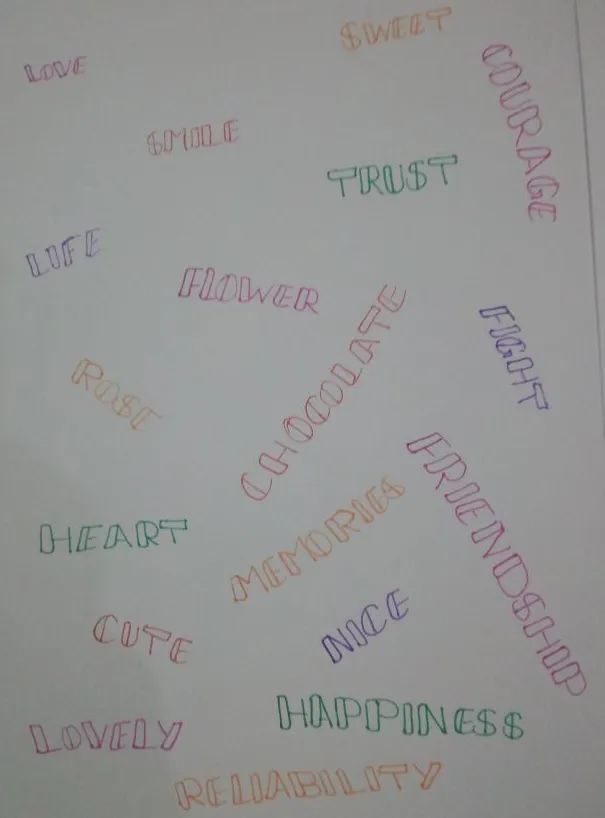 SWEET
LOVE
COURAGE
SMILE
TRUST
LIFE
FLOWER
CHOCOLATE
FIGHT
ROSE
FRIENDSHIP
MEMORIES
HEART
NICE
CUTE
HAPPINESS
LOVELY
RELIABILITY